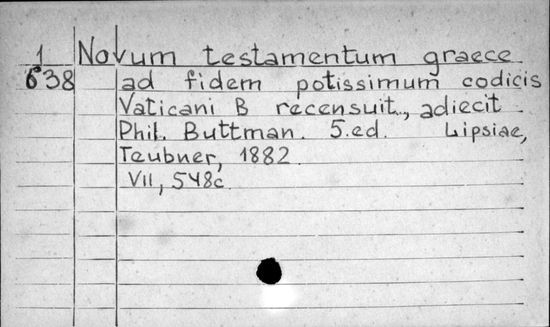 1 Novum testamentum graece
638 ad fidem potissimum codicis
Vaticani B recensuit., adiecit
Phil. Buttman. 5.ed. Lipsiae,
Teubner, 1882
VII, 548c